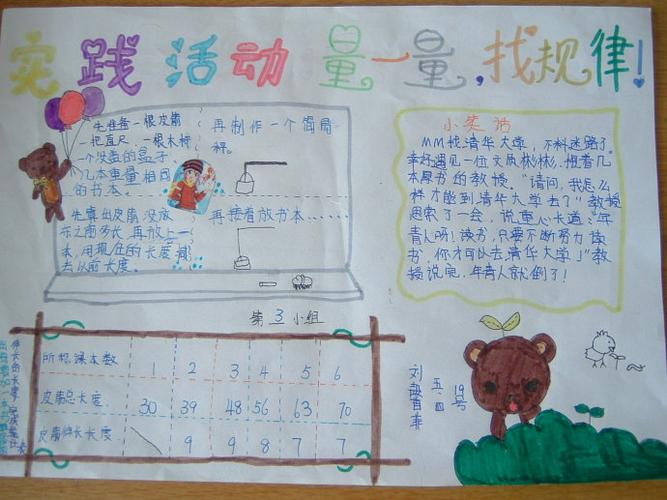 实践活动 量一量,找规律!
先准备一根皮筋
一把直尺、一根木棒
一个没盖的盒子
几本重量相同
的书本。
先算出皮筋没放
东西前多长,再放上一
本,用现在的长度减
去以前长度。
再制作一个简易
秤。
再接着放书本……
第3小组
小笑话
MM找清华大学,不料迷路了。
幸好遇见一位文质彬彬、抱着几
本厚书的教授。“请问,我怎么
样才能到清华大学去?”教授
思索了一会,说重心长道:“年
青人呀!读书,只要不断努力读
书,你才可以去清华大学!”教
授说完,年青人就倒了!
所称课本数 1 2 3 4 5 6
皮筋总长度 30 39 48 56 63 70
皮筋伸长长度 9 9 8 7 7
五.四
19号